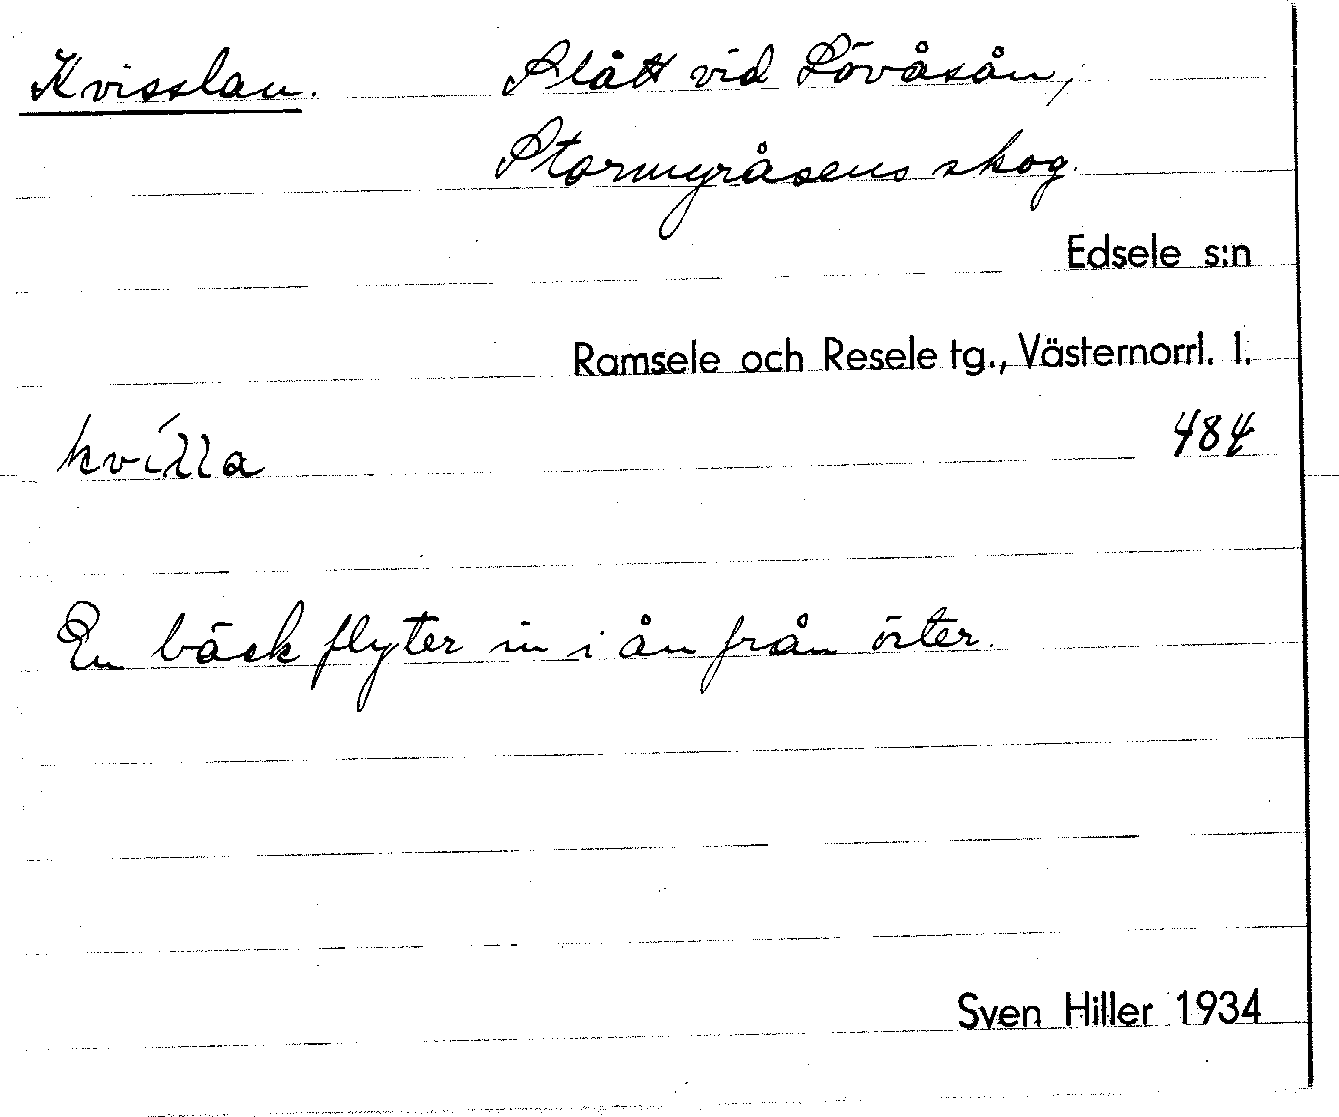 Kvisslan. Slått vid Lövåsån,
Stormyråsens skog.
Edsele s:n
Ramsele och Resele tg., Västernorrl. l.
484
En bäck flyter in i ån från öster.
Sven Hiller 1934